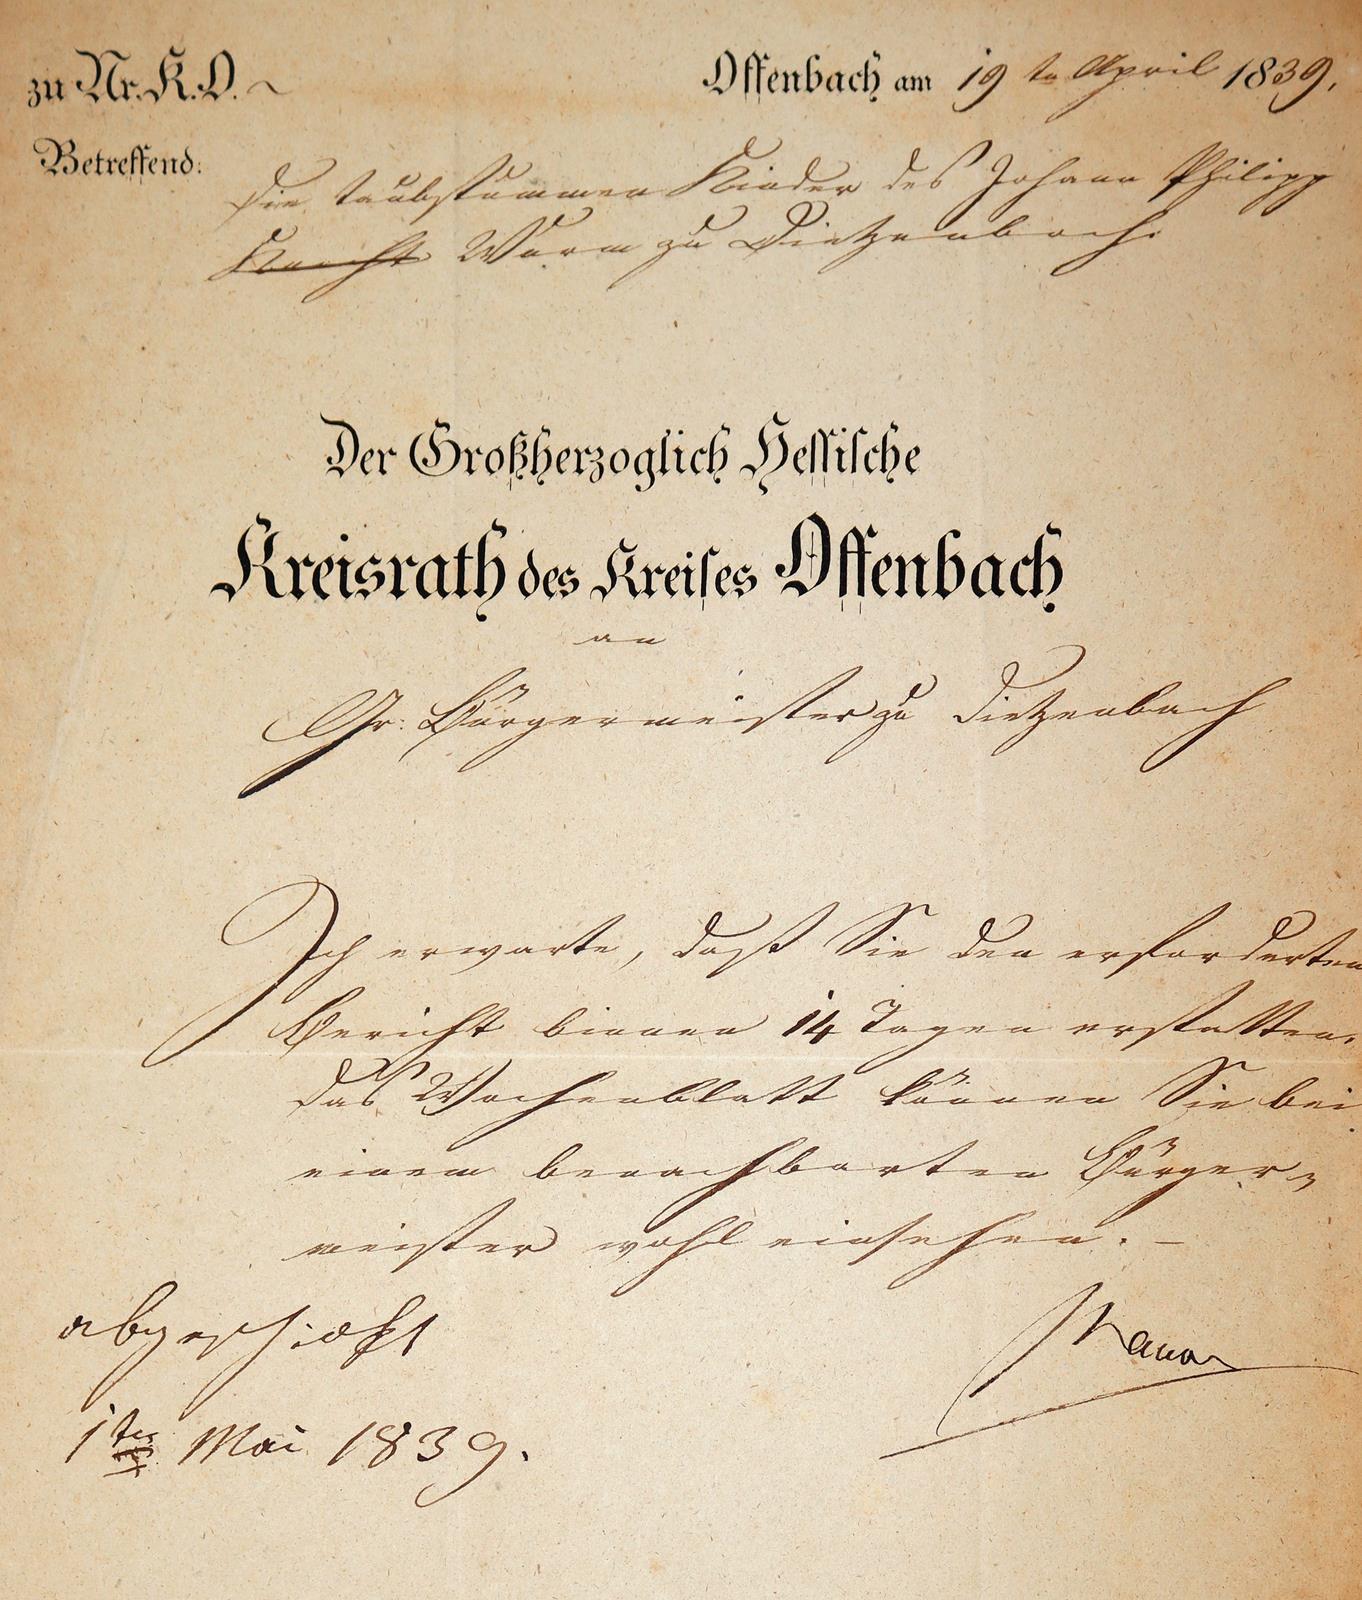 zu Nr. K. O.
Offenbach am 19ten April 1839.
Betreffend:
Die taubstummen Kinder des Johann Philipp
Knecht Wurm zu Dietzenbach.
Der Großherzoglich Hessische
Kreisrath des Kreises Offenbach
an
Gr. Bürgermeister zu Dietzenbach
Ich erwarte, daß Sie den erforderten
Bericht binnen 14 Tagen erstatten.
Das Wochenblatt können Sie bei
einem benachbarten Bürger-
meister wohl einsehen. –
abgeschickt
1ten Mai 1839.